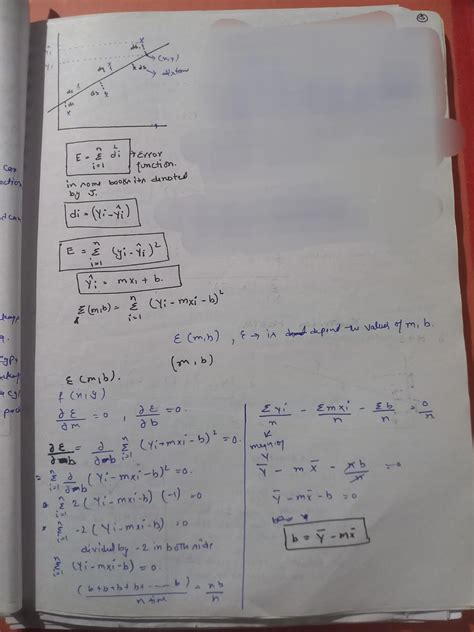 (x,y)
distance
E = Σ_{i=1}^{n} di² → Error function.
in some books its denoted
by J.
di = (Yi - Ŷi)
E = Σ_{i=1}^{n} (yi - Ŷi)²
Ŷi = mxi + b.
ε(m,b) = Σ_{i=1}^{n} (Yi - mxi - b)²
ε(m,b) , ε → is depend to values of m, b.
(m, b)
ε(m,b).
f(x,y)
∂ε/∂m = 0 , ∂ε/∂b = 0.
∂ε/∂b = ∂/∂b Σ_{i=1}^{n} (Yi + mxi - b)² = 0.
Σ_{i=1}^{n} ∂/∂b (Yi - mxi - b)² = 0.
Σ_{i=1}^{n} 2(Yi - mxi - b) (-1) = 0
Σ_{i=1}^{n} -2(Yi - mxi - b) = 0
divided by -2 in both side
Σ_{i=1}^{n} (Yi - mxi - b) = 0.
(b+b+b+b+.....b)/n time = nb/n
Σyi/n - Σmxi/n - Σb/n = 0/n
mean of Y
Ȳ - m x̄ - nb/n = 0
Ȳ - mx̄ - b = 0
b = Ȳ - mx̄